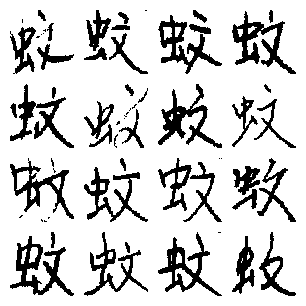 蚊蚊蚊蚊
蚊蚊蚊蚊
蚊蚊蚊蚊
蚊蚊蚊蚊